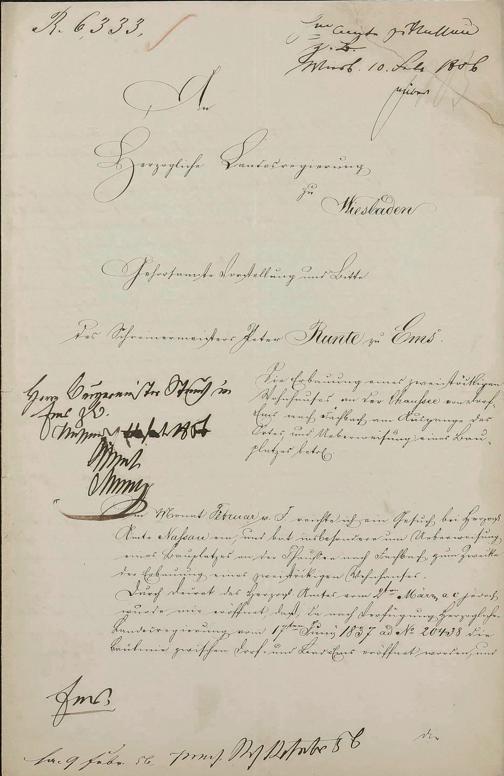 R. 6333.
Wiesb. 10. Febr 1856
An
Herzogliche Landesregierung
zu
Wiesbaden
Gehorsamste Vorstellung und Bitte
des Schreinermeisters Peter Kunte zu Ems.
Herrn Bürgermeister
Ems z. B.
Die Erbauung eines zweistöckigen
Wohnhauses an der Chaussee von Dorf
Ems nach Fachbach, am Ausgange des
Ortes, und Ueberweisung eines Bau-
platzes betr.
Im Monat Februar v. J. reichte ich ein Gesuch bei Herzogl.
Amte Nassau ein, und bat insbesondere um Ueberweisung
eines Bauplatzes an der Chaussee nach Fachbach, zum Zwecke
der Erbauung eines zweistöckigen Wohnhauses.
Durch Decret des Herzogl. Amtes vom März a c jedoch,
wurde mir eröffnet, daß, da nach Verfügung Herzoglicher
Landesregierung vom 17ten Juni 1837 ad No 20438 die
Baulinie zwischen Dorf- und Bad-Ems eröffnet worden, und
Ems.
pr. 9 Febr. 56
die